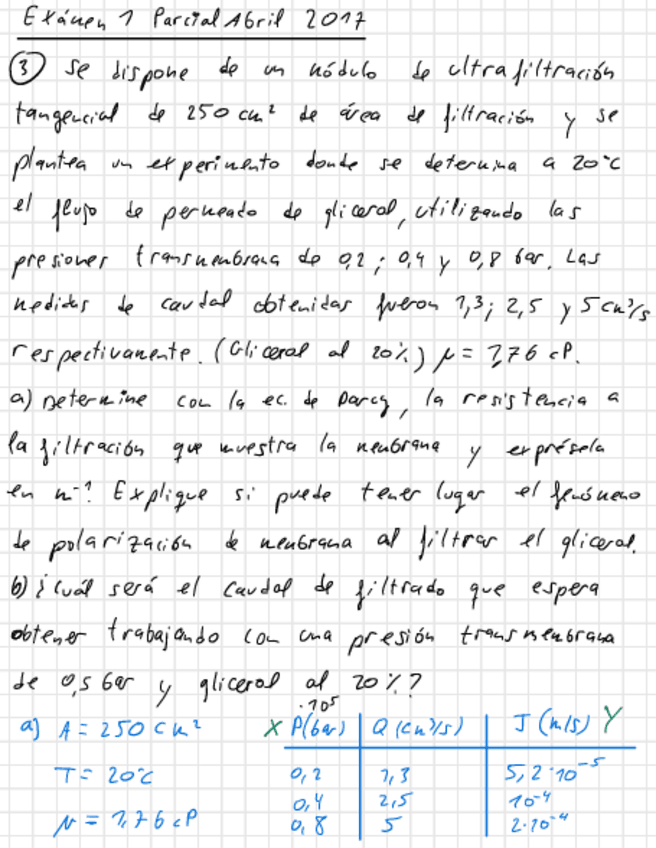 Exámen 1 Parcial Abril 2017
③ Se dispone de un módulo de ultrafiltración
tangencial de 250 cm² de área de filtración y se
plantea un experimento donde se determina a 20°C
el flujo de permeado de glicerol, utilizando las
presiones transmembrana de 0,2 ; 0,4 y 0,8 bar. Las
medidas de caudal obtenidas fueron 1,3 ; 2,5 y 5 cm³/s
respectivamente. (Glicerol al 20%) μ = 1,76 cP.
a) Determine con la ec. de Darcy, la resistencia a
la filtración que muestra la membrana y exprésela
en m⁻¹? Explique si puede tener lugar el fenómeno
de polarización de membrana al filtrar el glicerol.
b) ¿Cuál será el caudal de filtrado que espera
obtener trabajando con una presión transmembrana
de 0,5 bar y glicerol al 20%?
a) A = 250 cm² X P(bar) ·10⁵ Q (cm³/s) J (m/s) Y
T = 20°C 0,2 1,3 5,2·10⁻⁵
0,4 2,5 10⁻⁴
μ = 1,76 cP 0,8 5 2·10⁻⁴